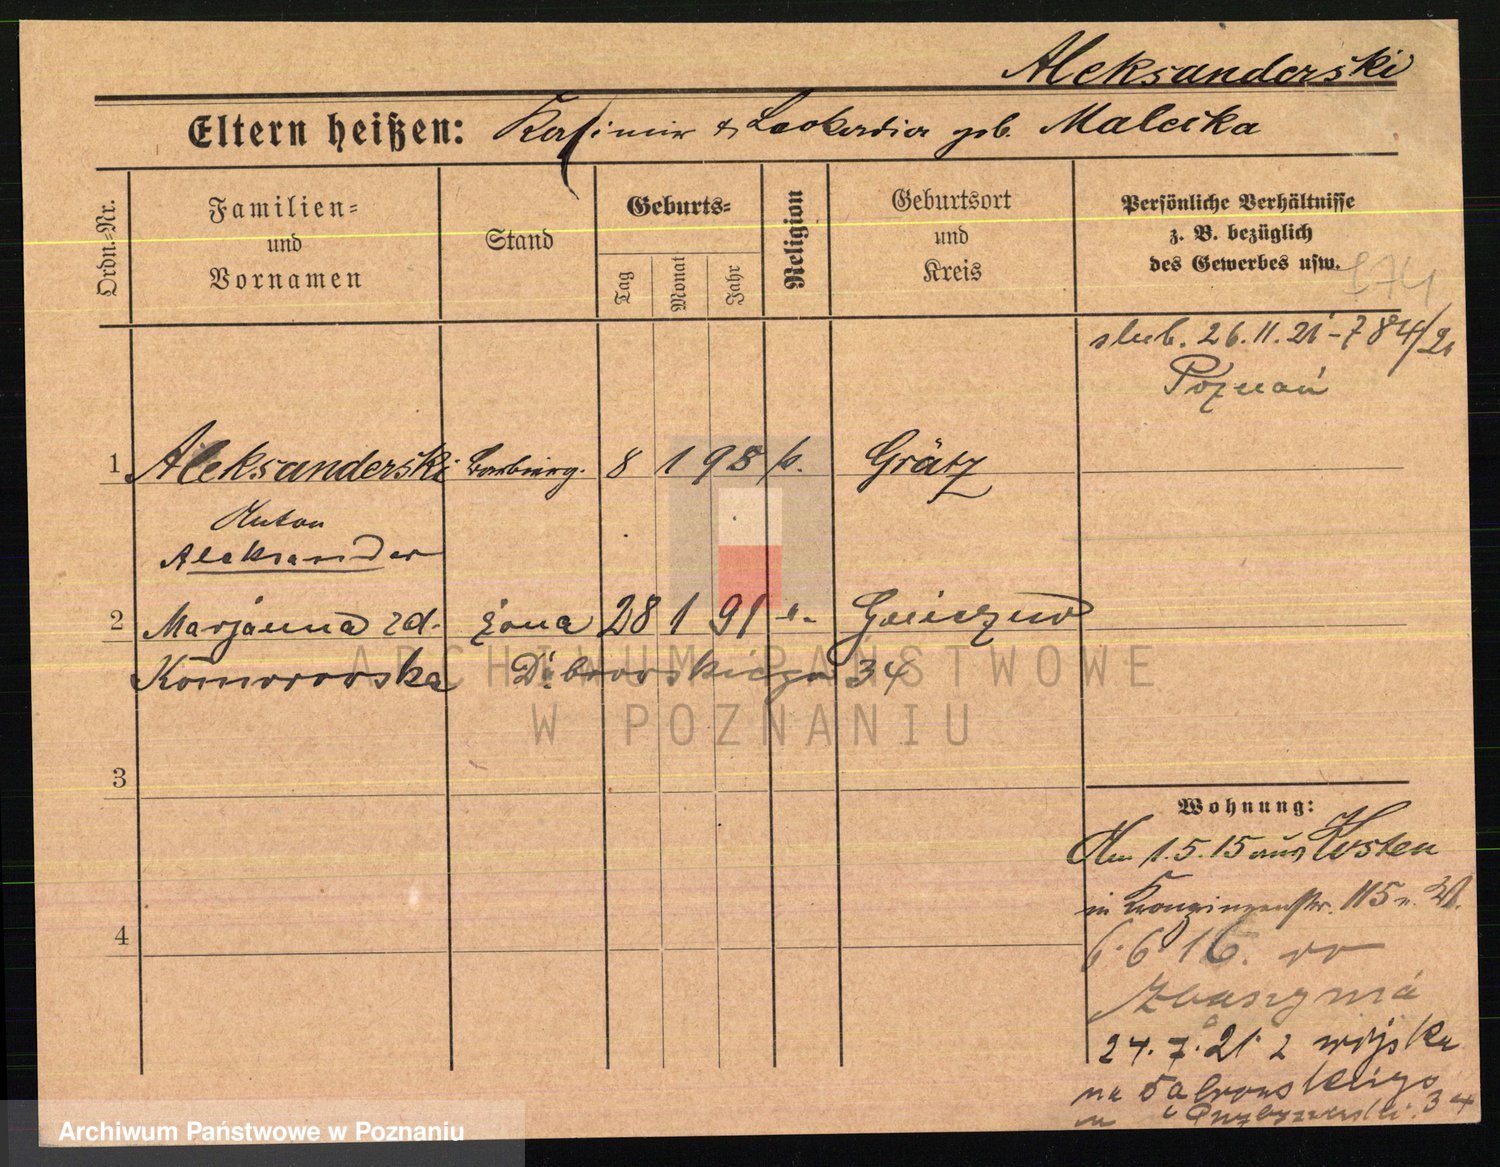 Aleksanderski
Eltern heißen: Kasimir & Leokardia geb. Malcika
Ordn.-Nr.
Familien- und Vornamen
Stand
Geburts-
Tag
Monat
Jahr
Religion
Geburtsort und Kreis
Persönliche Verhältnisse
z. B. bezüglich
des Gewerbes usw.
874
slub. 26.11.21 - 784/21
Poznań
1 Aleksanderski 8 1 98 k. Grätz
Anton
Aleksander
2 Marjanna zd. żona 28 1 91 "
Komorowska Dąbrowskiego 34
3
4
Wohnung:
Am 1.5.15 aus Kosten
in Kronprinzenstr. 115
6.6.16.
Zbaszynia
24.7.21 z wojska
na Dabrowskiego
34
ARCHIWUM PAŃSTWOWE
W POZNANIU
Archiwum Państwowe w Poznaniu